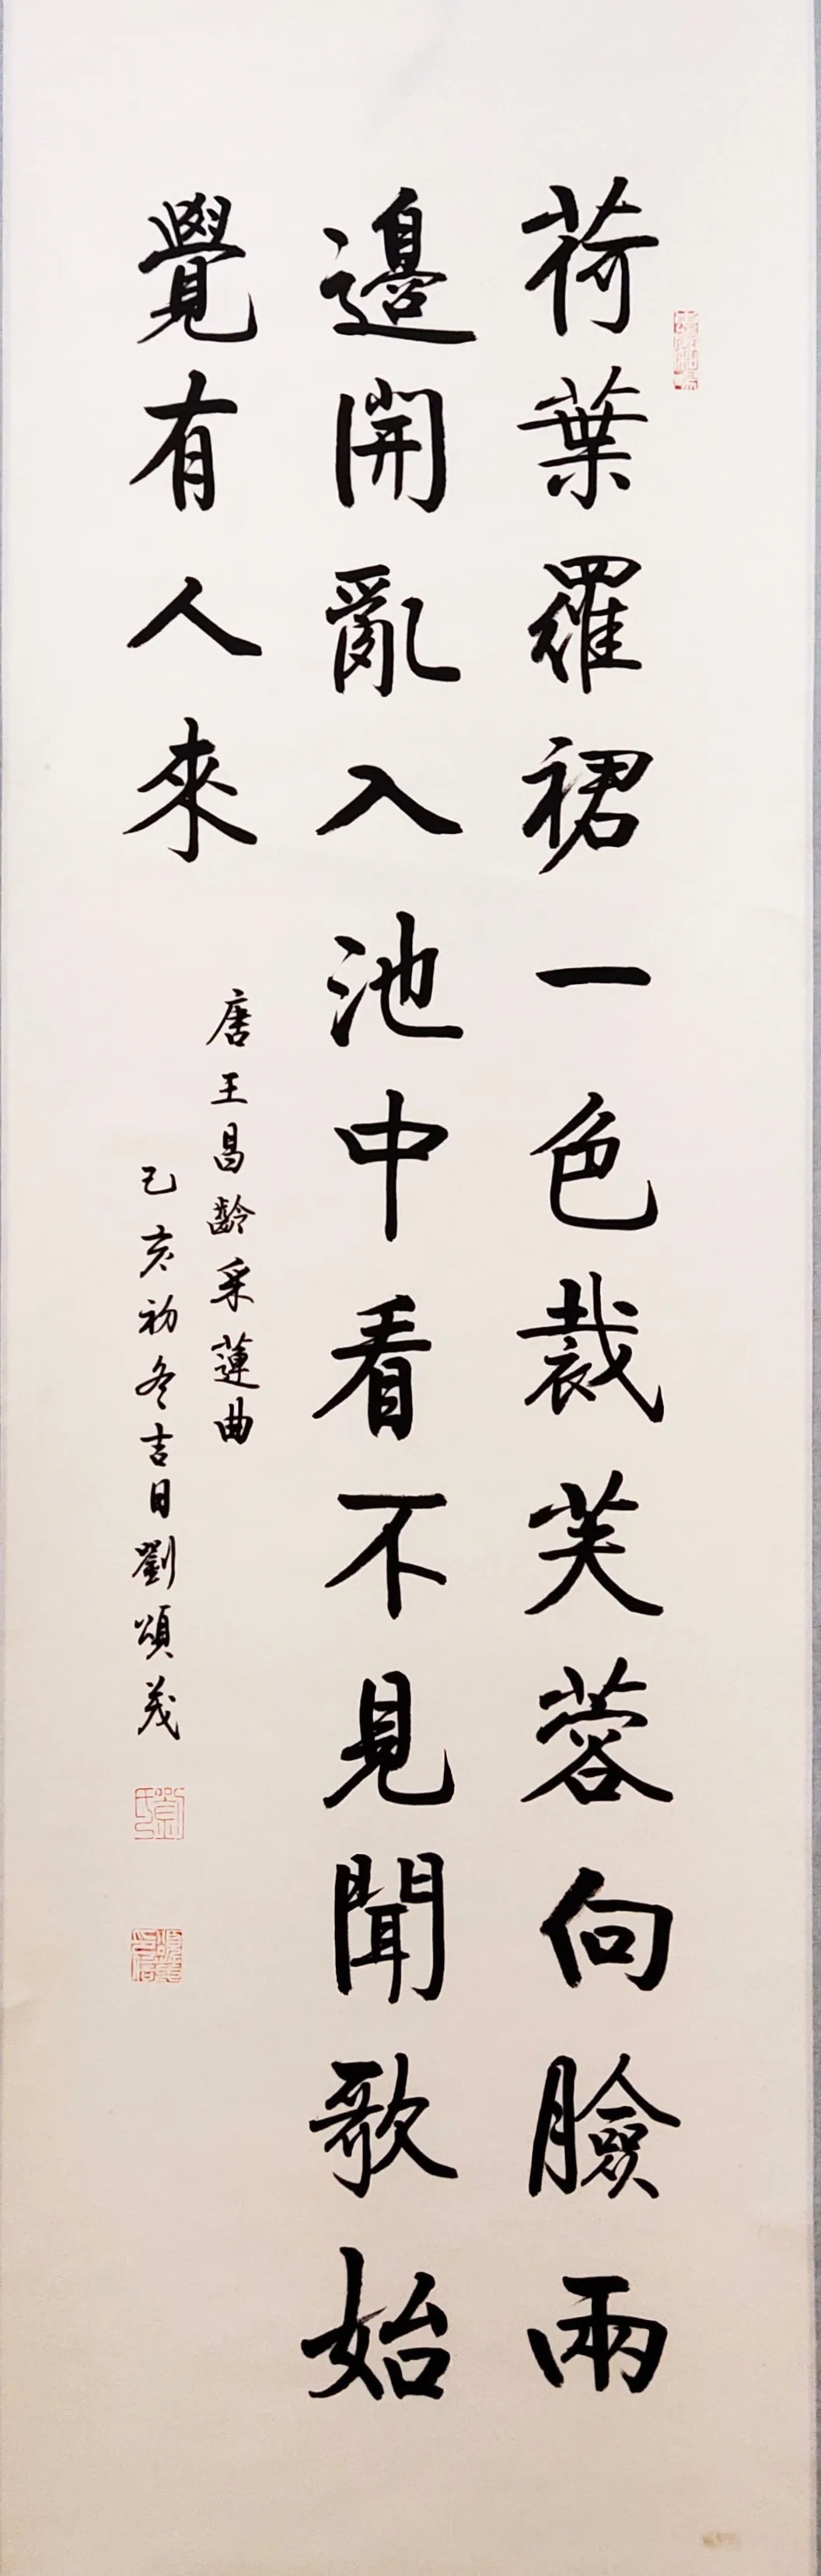 荷葉羅裙一色裁芙蓉向臉兩
邉開亂入池中看不見聞歌始
覺有人來
唐王昌齡采蓮曲
己亥初冬吉日劉頌茂